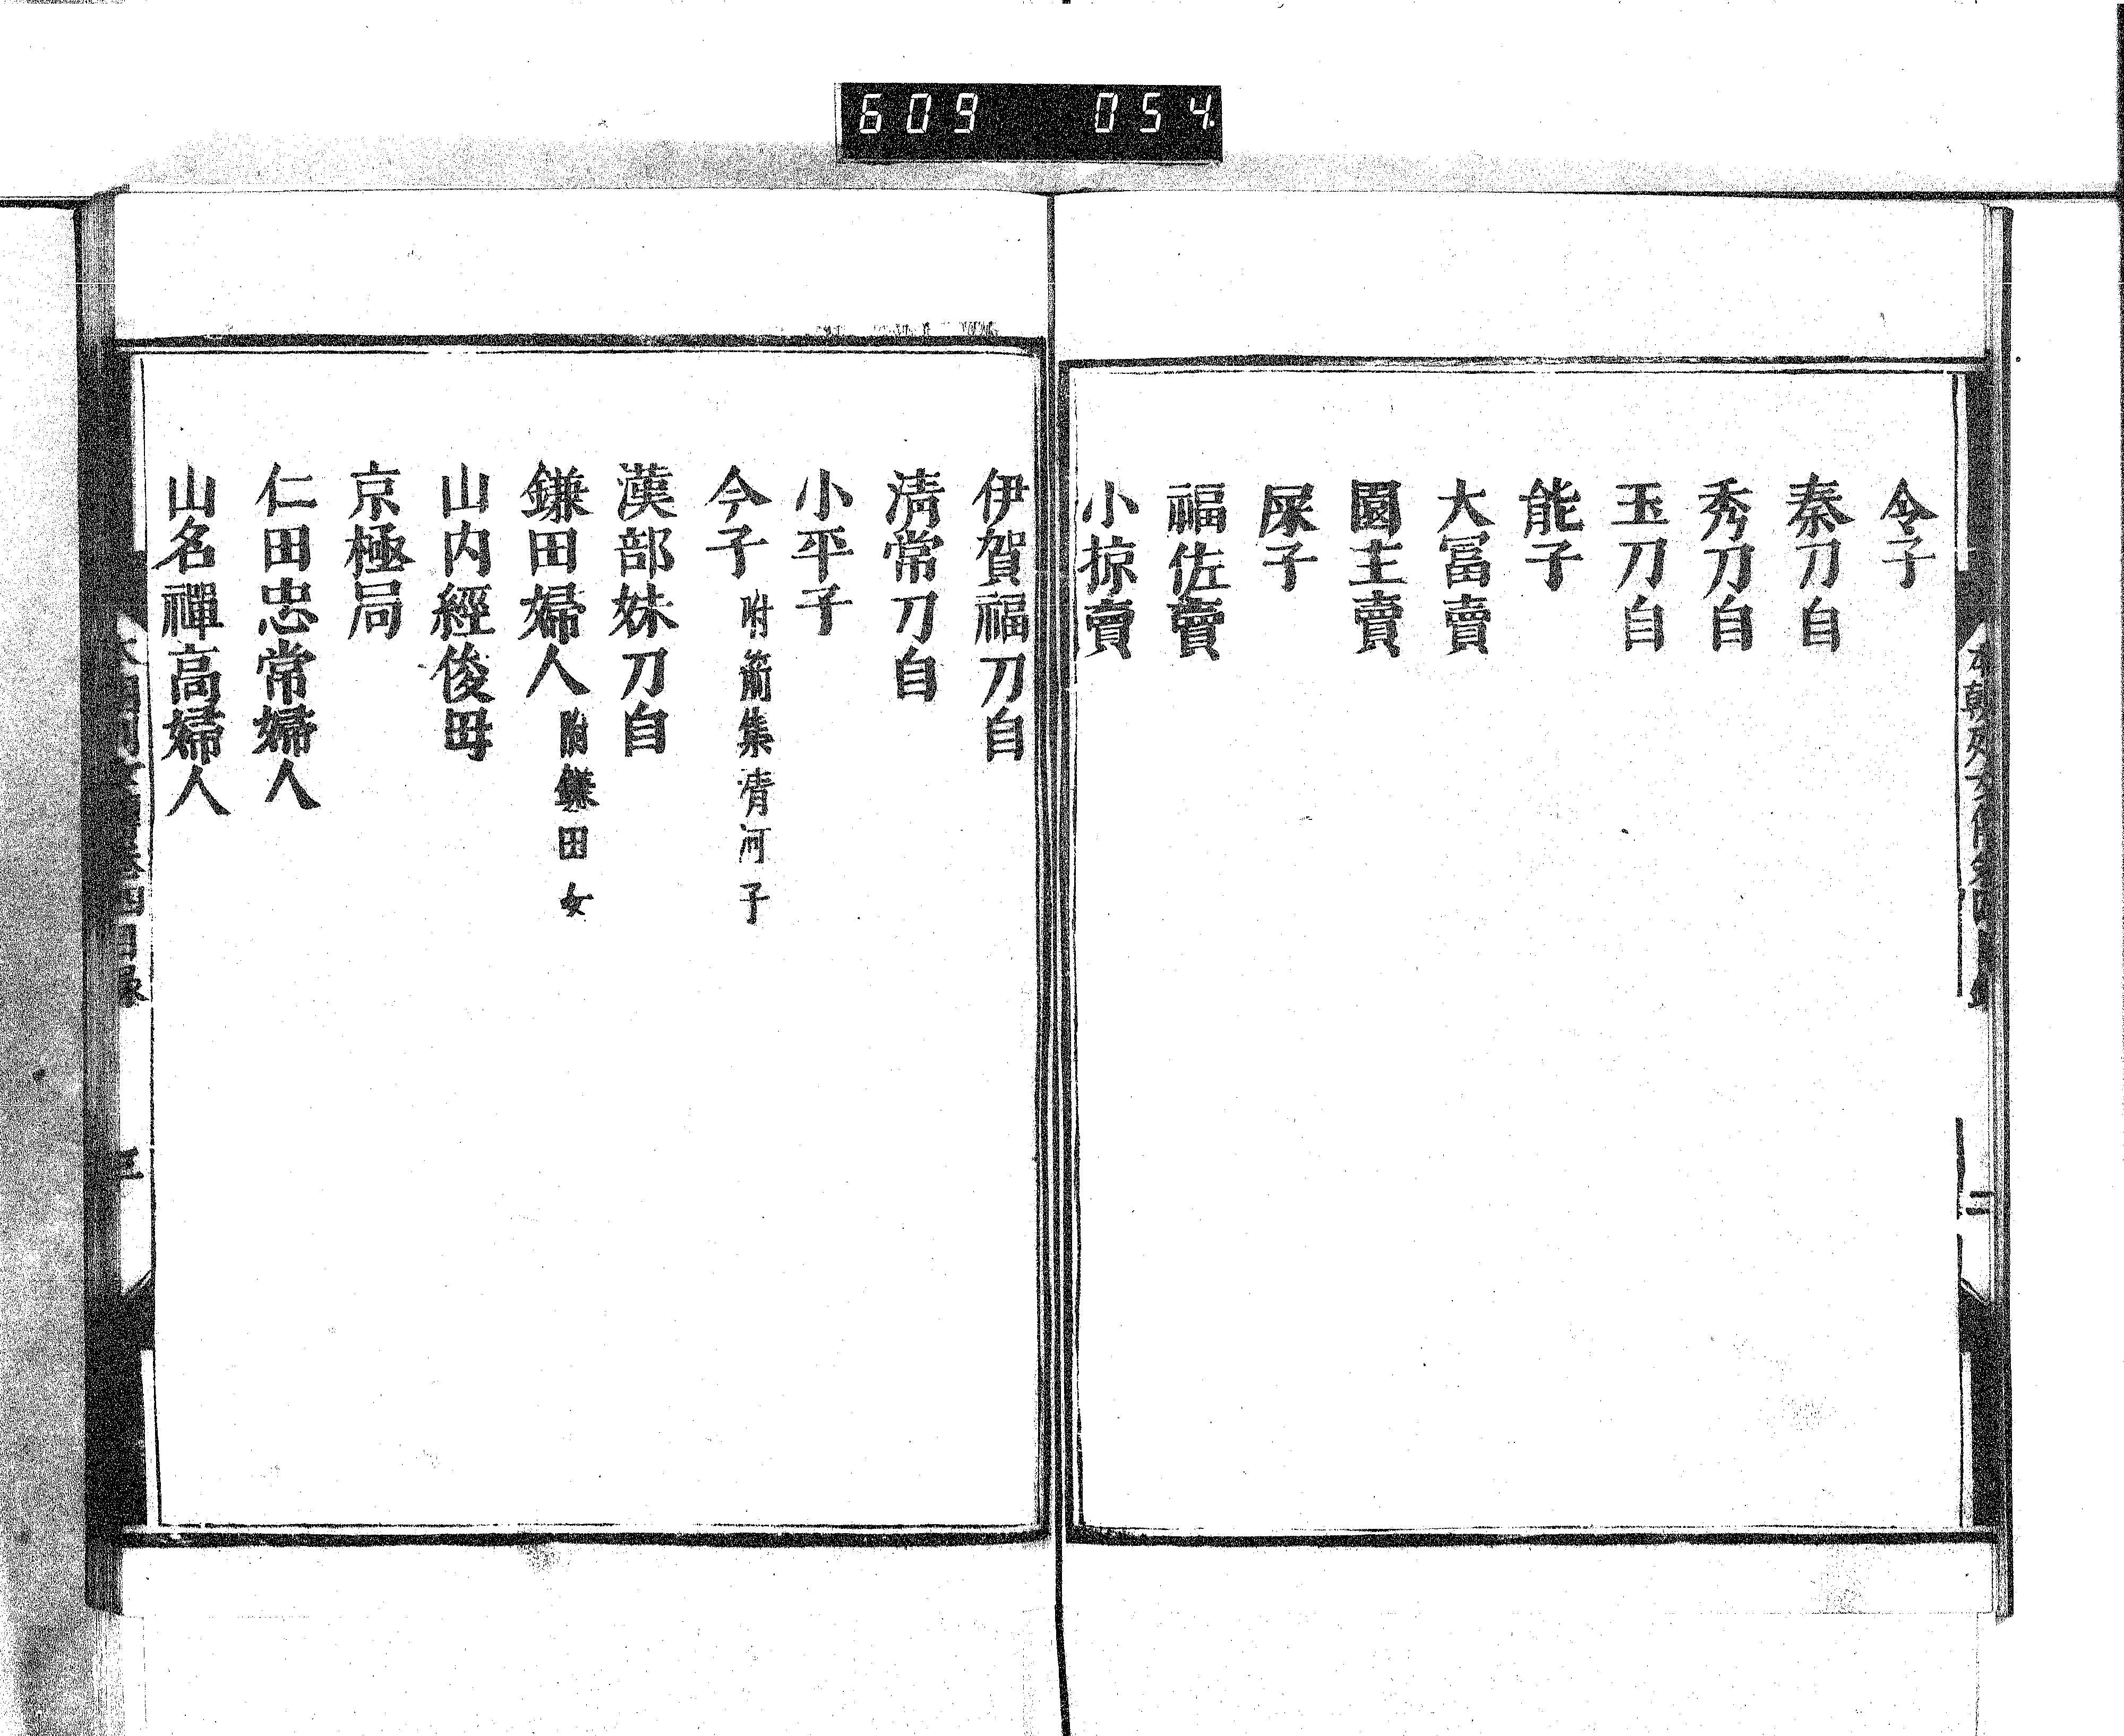 609 054
令子
秦刀自
秀刀自
玉刀自
能子
大冨賣
園主賣
屎子
福佐賣
小掠賣
伊賀福刀自
清常刀自
小平子
今子 附箭集清河子
漢部妹刀自
鎌田婦人 附鎌田女
山内經俊母
京極局
仁田忠常婦人
山名禪高婦人
三